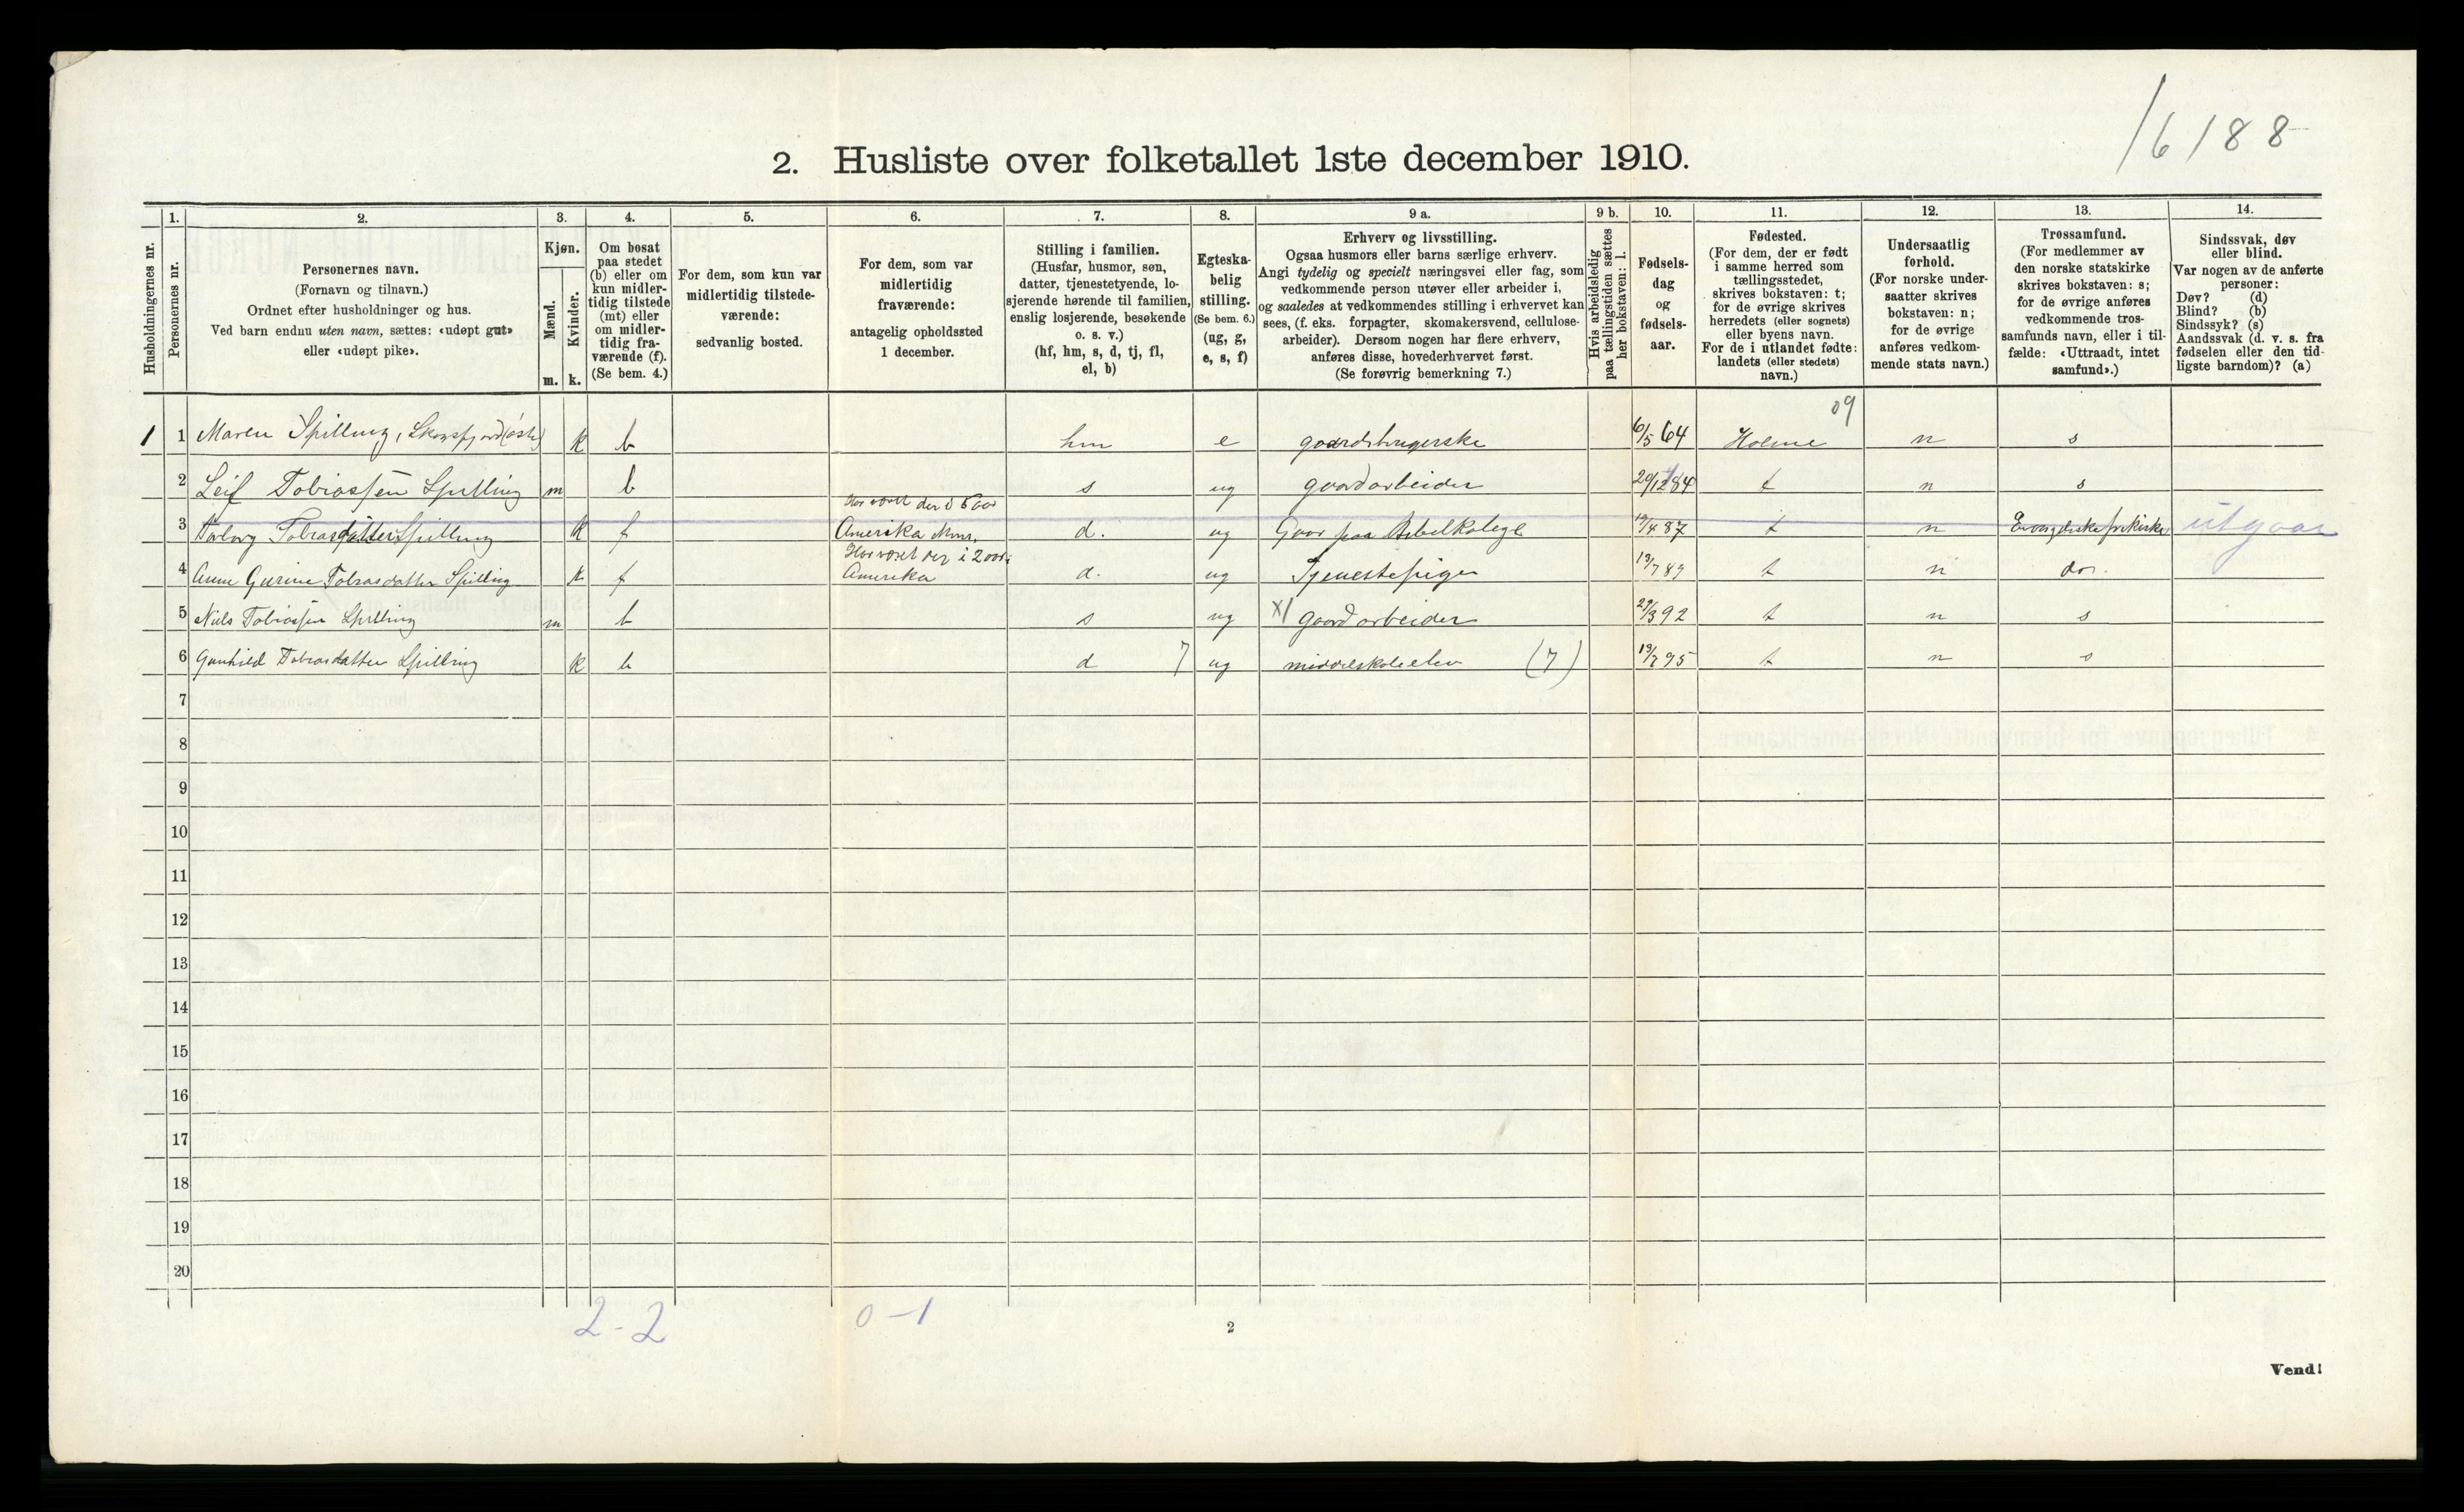 16188
2. Husliste over folketallet 1ste december 1910.
Husholdningernes nr.
1.
Personernes nr.
2.
Personernes navn.
(Fornavn og tilnavn.)
Ordnet efter husholdninger og hus.
Ved barn endnu uten navn, sættes: «udøpt gut»
eller «udøpt pike».
3.
Kjøn.
Mænd.
Kvinder.
m. k.
4.
Om bosat
paa stedet
(b) eller om
kun midler-
tidig tilstede
(mt) eller
om midler-
tidig fra-
værende (f).
(Se bem. 4.)
5.
For dem, som kun var
midlertidig tilstede-
værende:
sedvanlig bosted.
6.
For dem, som var
midlertidig
fraværende:
antagelig opholdssted
1 december.
7.
Stilling i familien.
(Husfar, husmor, søn,
datter, tjenestetyende, lo-
sjerende hørende til familien,
enslig losjerende, besøkende
o. s. v.)
(hf, hm, s, d, tj, fl,
el, b)
8.
Egteska-
belig
stilling.
(Se bem. 6.)
(ug, g,
e, s, f)
9 a.
Erhverv og livsstilling.
Ogsaa husmors eller barns særlige erhverv.
Angi tydelig og specielt næringsvei eller fag, som
vedkommende person utøver eller arbeider i,
og saaledes at vedkommendes stilling i erhvervet kan
sees, (f. eks. forpagter, skomakersvend, cellulose-
arbeider). Dersom nogen har flere erhverv,
anføres disse, hovederhvervet først.
(Se forøvrig bemerkning 7.)
9 b.
Hvis arbeidsledig
paa tællingstiden sættes
her bokstaven: l.
10.
Fødsels-
dag
og
fødsels-
aar.
11.
Fødested.
(For dem, der er født
i samme herred som
tællingsstedet,
skrives bokstaven: t;
for de øvrige skrives
herredets (eller sognets)
eller byens navn.
For de i utlandet fødte:
landets (eller stedets)
navn.)
12.
Undersaatlig
forhold.
(For norske under-
saatter skrives
bokstaven: n;
for de øvrige
anføres vedkom-
mende stats navn.)
13.
Trossamfund.
(For medlemmer av
den norske statskirke
skrives bokstaven: s;
for de øvrige anføres
vedkommende tros-
samfunds navn, eller i til-
fælde: «Uttraadt, intet
samfund».)
14.
Sindssvak, døv
eller blind.
Var nogen av de anførte
personer:
Døv? (d)
Blind? (b)
Sindssyk? (s)
Aandssvak (d. v. s. fra
fødselen eller den tid-
ligste barndom)? (a)
09
1 1 Maren Spilling, k b hm e gaardsbrugerske 6/5 64 Holme n s
2 Leif Tobiassen Spilling m b s ug gaardarbeider 29/12 84 t n s
Har været der i 5 aar
3 Tobiasdatter Spilling k f Amerika Minn. d. ug Gaar paa Bibelkolege 19/4 87 t n frikirke utgaar
Har været der i 2 aar
4 Anne Gurine Tobiasdatter Spilling k f Amerika d. ug Tjenestepige 13/7 89 t n do.
5 Niels Tobiassen Spilling m b s ug X gaardarbeider 29/3 92 t n s
6 Gunhild Tobiasdatter Spilling k b d 7 ug middelskoleelev (7) 19/7 95 t n s
7
8
9
10
11
12
13
14
15
16
17
18
19
20
2-2 0-1
2
Vend!